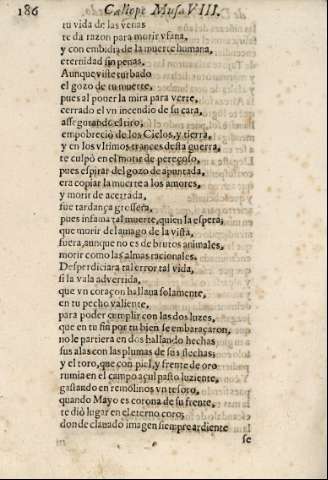 186 Caliope Musa VIII.
tu vida de las venas
te da razon para morir vfana,
y con embidia de la muerte humana,
eternidad sin penas.
Aunque viste turbado
el gozo de tu muerte,
pues al poner la mira para verte,
cerrado el vn incendio de su cara,
assegurando el tiro;
empobreciò de los Cielos, y tierra,
y en los vltimos trances desta guerra,
te culpò en el morir de pereçoso,
pues espirar del gozo de apuntada,
era copiar la muerte a los amores,
y morir de acertada,
fue tardança grossera,
pues infama tal muerte, quien la espera;
que morir del amago de la vista,
fuera, aunque no es de brutos animales,
morir como las almas racionales.
Desperdiciara tal error tal vida,
si la vala advertida,
que vn coraçon hallaua solamente,
en tu pecho valiente,
para poder cumplir con las dos luzes,
que en tu fin por tu bien se embaraçaron,
no le partiera en dos hallando hechas
sus alas con las plumas de sus flechas;
y el toro, que con piel, y frente de oro
rumia en el campo açul pasto luziente,
gastando en remolinos vn tesoro,
quando Mayo es corona de su frente,
te diò lugar en el eterno coro;
donde clauado imagen siempre ardiente
se